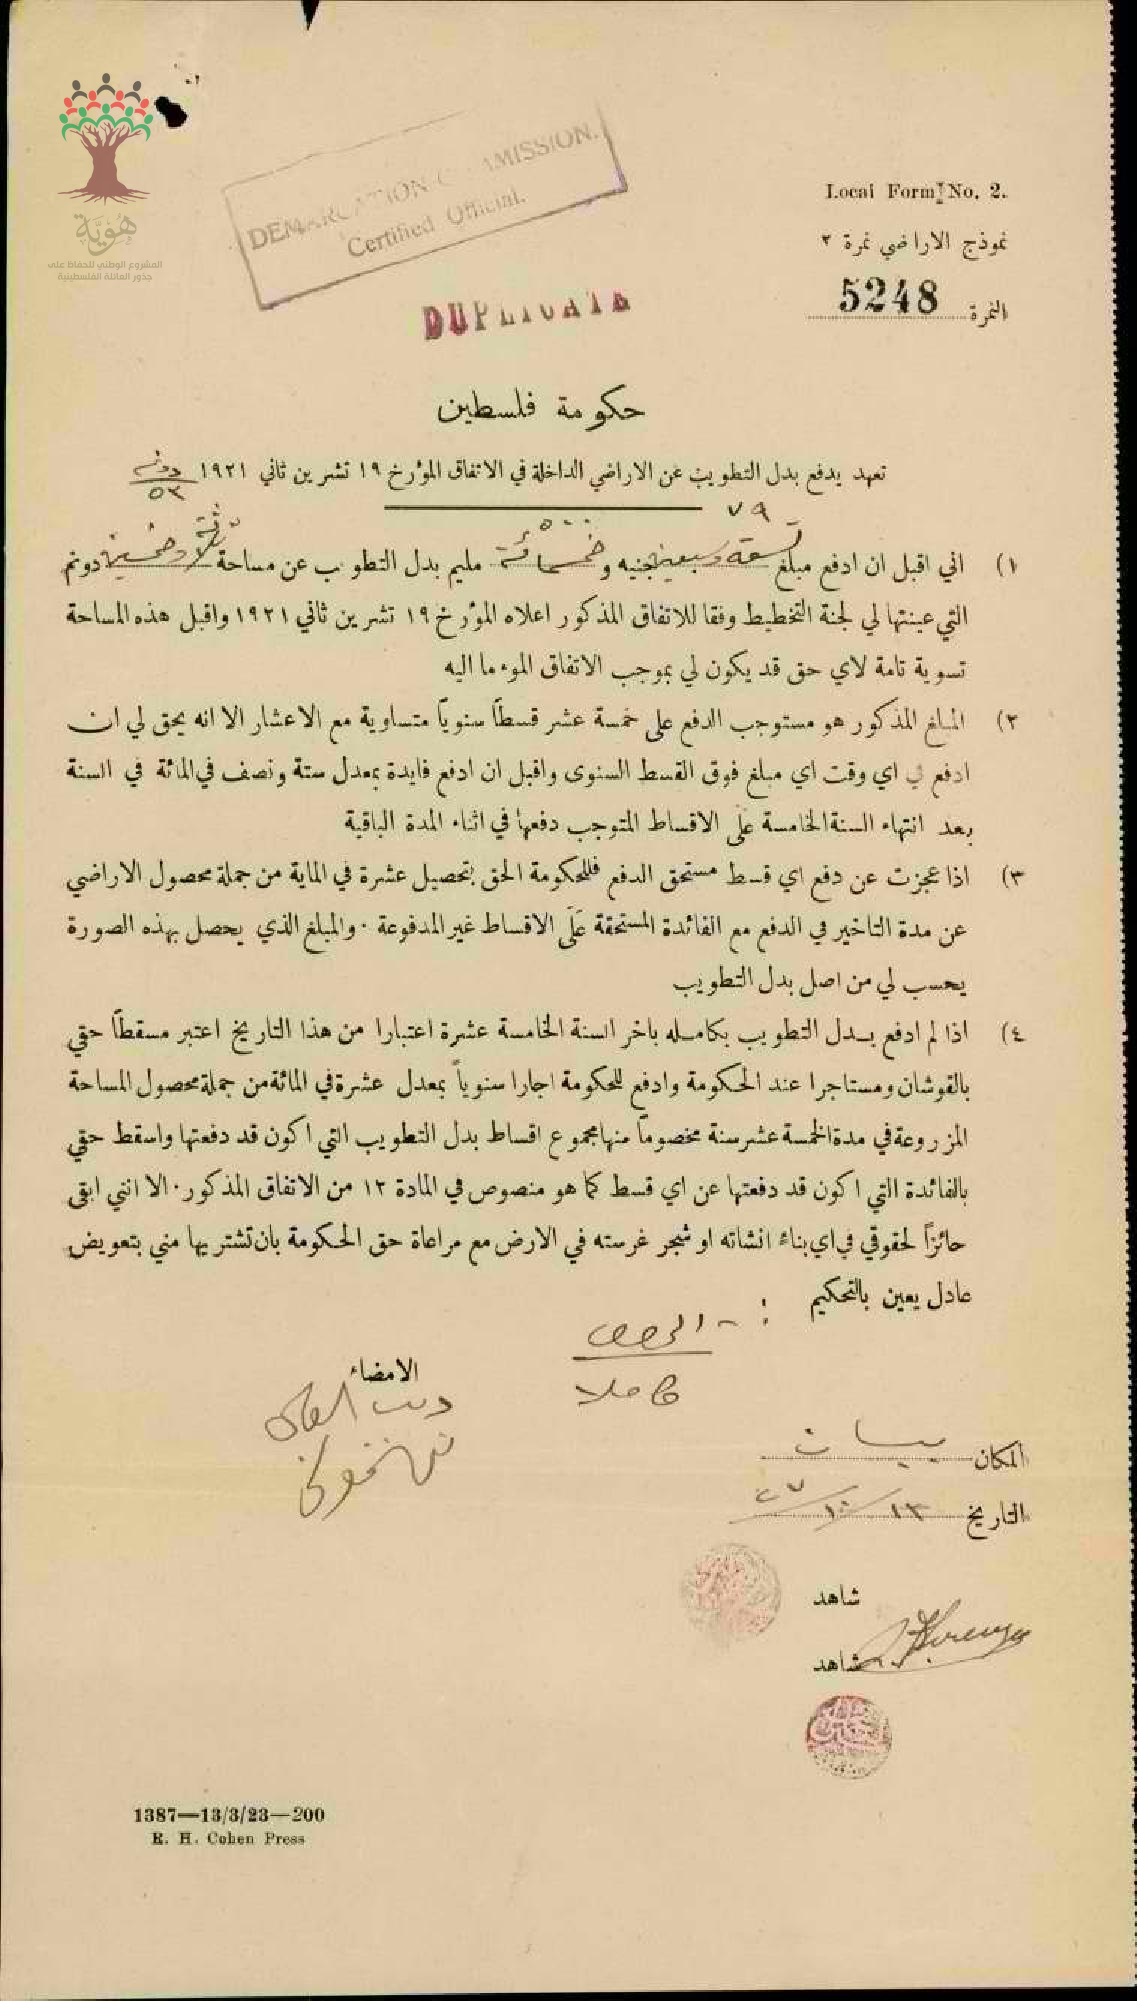 هُوِيَّة
المشروع الوطني للحفاظ على
جذور العائلة الفلسطينية
DEMARCATION COMMISSION.
Certified Official.
DUPLICATE
Local Form No. 2.
نموذج الاراضي نمرة ٢
النمرة 5248
حكومة فلسطين
تعهد بدفع بدل التطويب عن الاراضي الداخلة في الاتفاق المؤرخ ١٩ تشرين ثاني ١٩٢١ دونم ٥٣
٧٩ ٥٠٠
١) اني اقبل ان ادفع مبلغ تسعة وسبعين جنيه و خمسمائة مليم بدل التطويب عن مساحة ثلاثة وخمسين دونم
التي عينتها لي لجنة التخطيط وفقا للاتفاق المذكور اعلاه المؤرخ ١٩ تشرين ثاني ١٩٢١ واقبل هذه المساحة
تسوية تامة لاي حق قد يكون لي بموجب الاتفاق الموء ما اليه
٢) المبلغ المذكور هو مستوجب الدفع على خمسة عشر قسطاً سنوياً متساوية مع الاعشار الا انه يحق لي ان
ادفع في اي وقت اي مبلغ فوق القسط السنوى واقبل ان ادفع فايدة بمعدل ستة ونصف في المائة في السنة
بعد انتهاء السنة الخامسة عَلَى الاقساط المتوجب دفعها في اثناء المدة الباقية
٣) اذا عجزت عن دفع اي قسط مستحق الدفع فللحكومة الحق بتحصيل عشرة في الماية من جملة محصول الاراضي
عن مدة التاخير في الدفع مع الفائدة المستحقة عَلَى الاقساط غير المدفوعة ٠ والمبلغ الذي يحصل بهذه الصورة
يحسب لي من اصل بدل التطويب
٤) اذا لم ادفع بدل التطويب بكامله باخر السنة الخامسة عشرة اعتبارا من هذا التاريخ اعتبر مسقطاً حقي
بالقوشان ومستاجرا عند الحكومة وادفع للحكومة اجارا سنوياً بمعدل عشرة في المائة من جملة محصول المساحة
المزروعة في مدة الخمسة عشر سنة مخصوماً منها مجموع اقساط بدل التطويب التي اكون قد دفعتها واسقط حقي
بالفائدة التي اكون قد دفعتها عن اي قسط كما هو منصوص في المادة ١٢ من الاتفاق المذكور ٠ الا انني ابقى
حائزاً لحقوقي في اي بناء انشاته او شجر غرسته في الارض مع مراعاة حق الحكومة بان تشتريها مني بتعويض
عادل يعين بالتحكيم
كاملا
الامضاء
المكان بيسان
التاريخ ١٣/١٠/٢٧
شاهد
شاهد
1387—13/3/23—200
R. H. Cohen Press